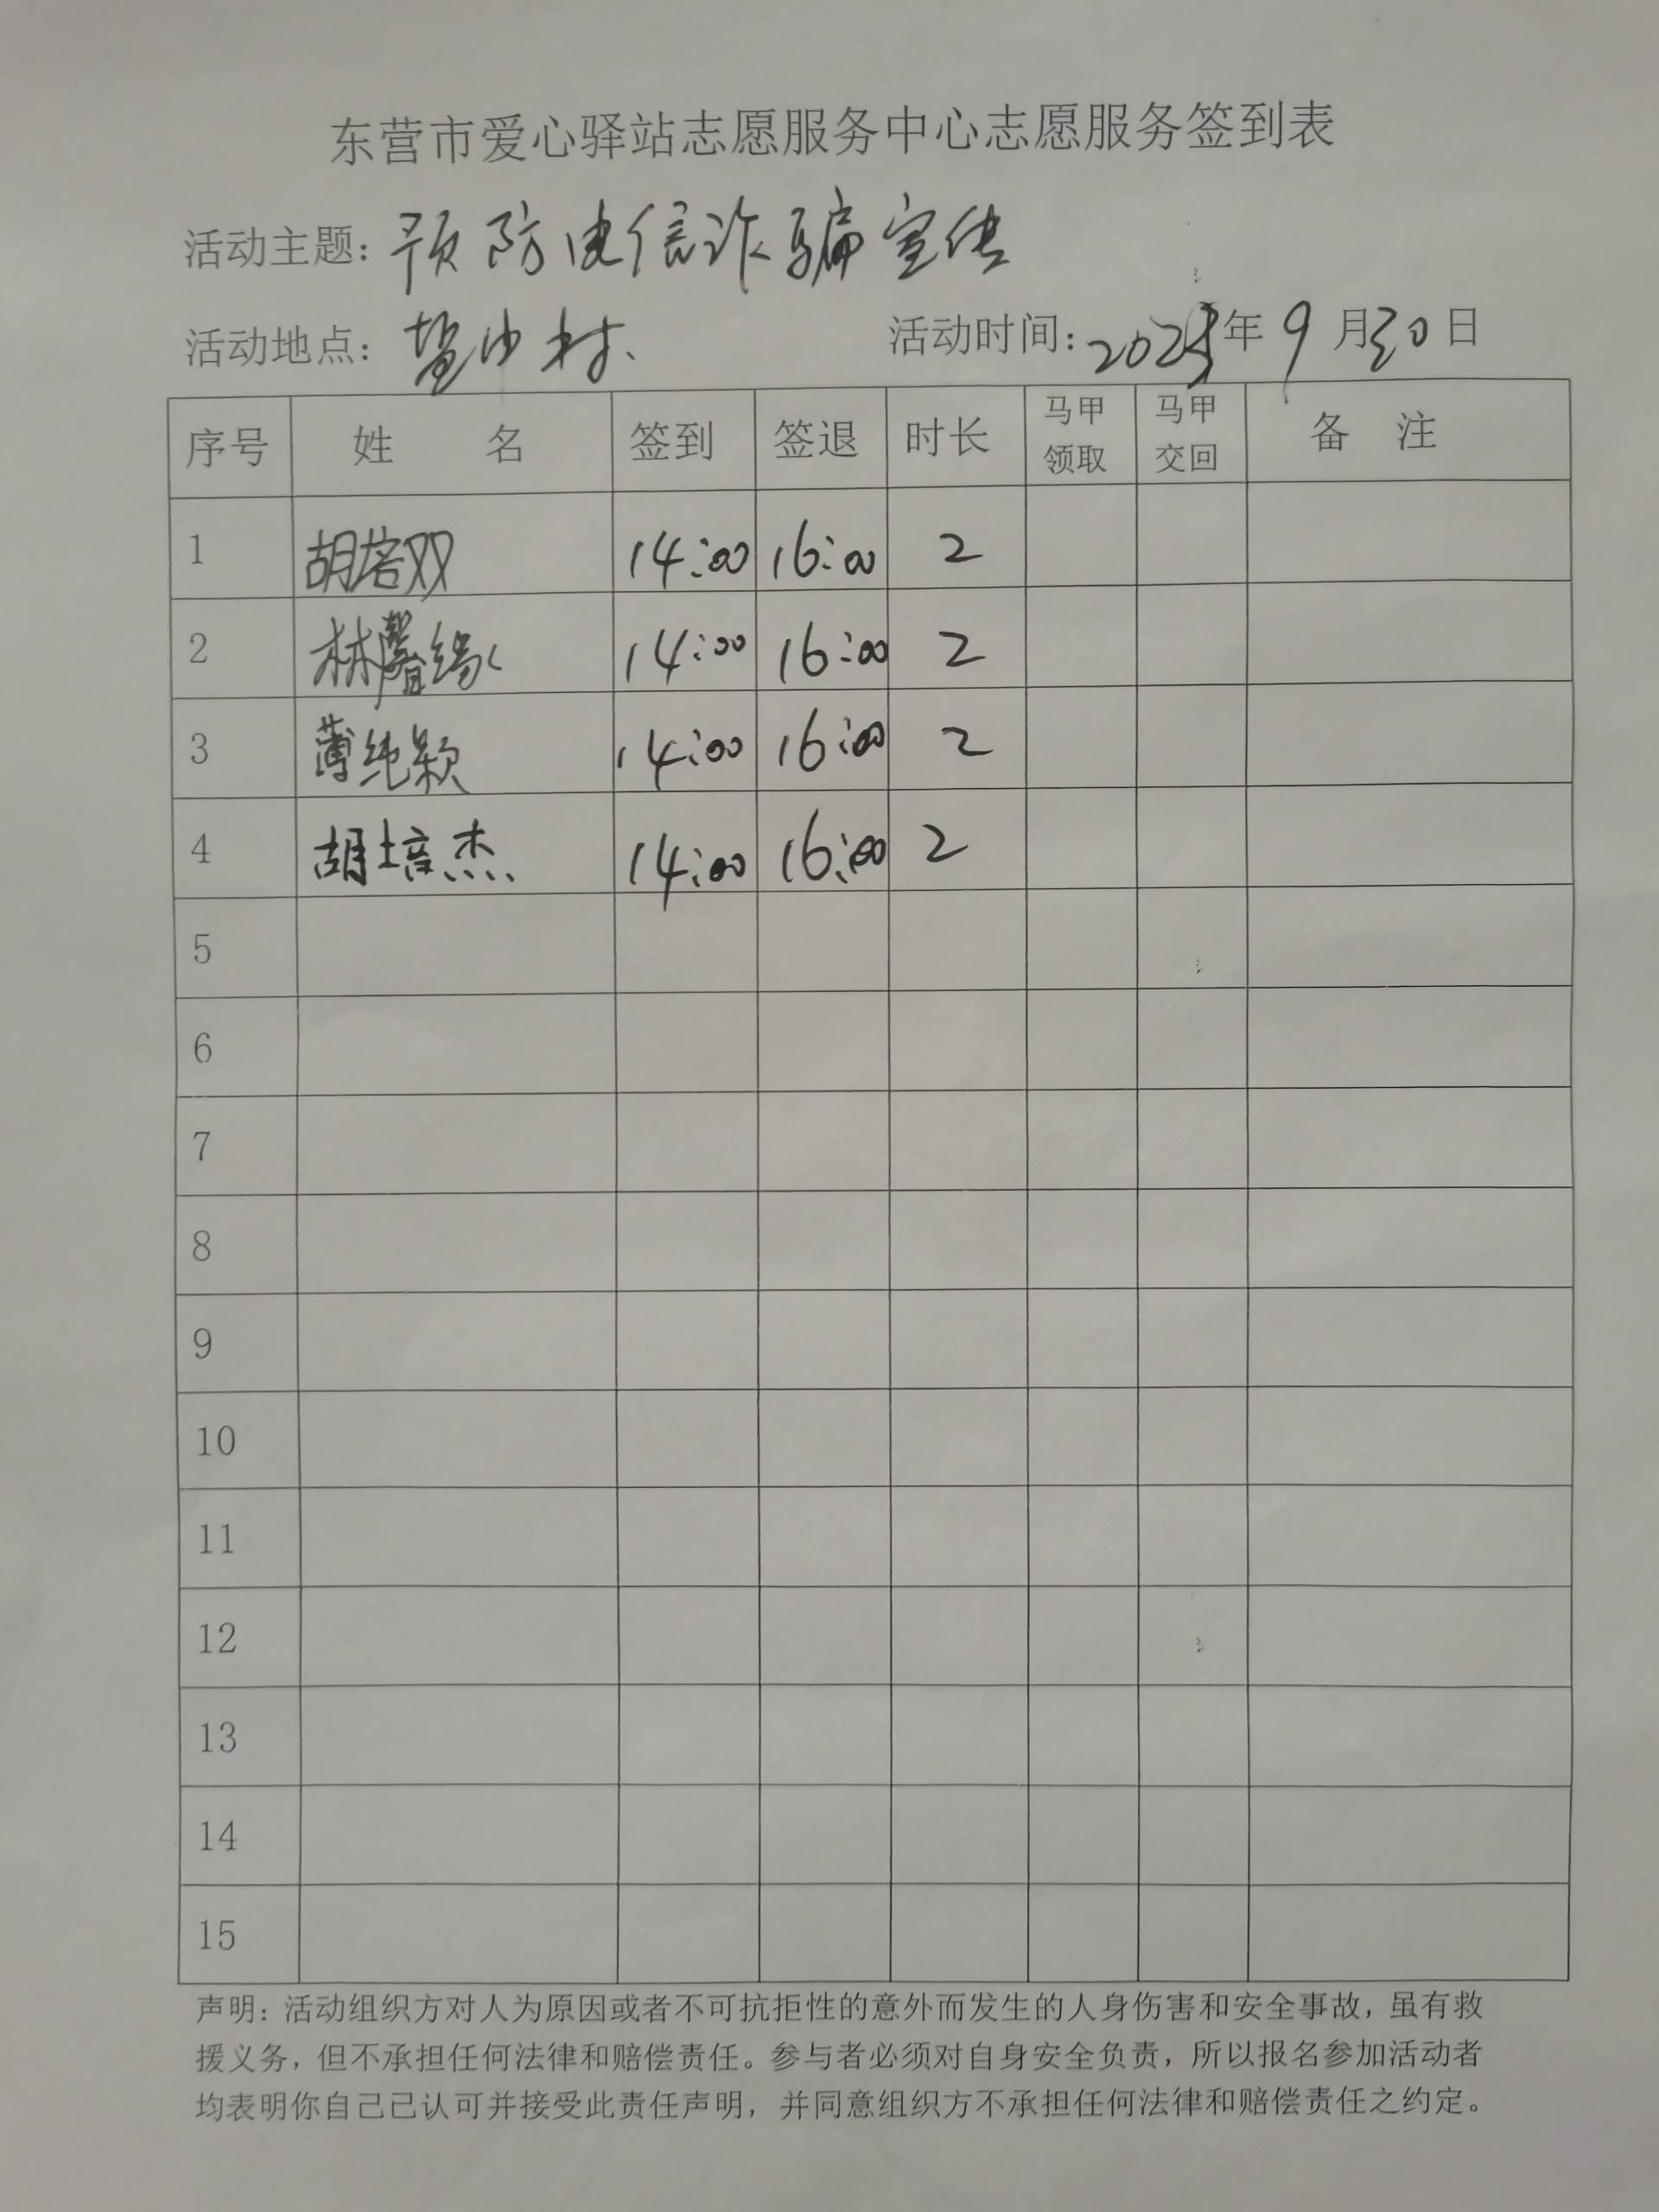 东营市爱心驿站志愿服务中心志愿服务签到表
活动主题：预防电信诈骗宣传
活动地点：盐内村 活动时间：2025年9月30日
序号 姓名 签到 签退 时长 马甲领取 马甲交回 备注
1 胡培双 14:00 16:00 2
2 林馨缘 14:00 16:00 2
3 薄纯颖 14:00 16:00 2
4 胡培杰 14:00 16:00 2
5
6
7
8
9
10
11
12
13
14
15
声明：活动组织方对人为原因或者不可抗拒性的意外而发生的人身伤害和安全事故，虽有救
援义务，但不承担任何法律和赔偿责任。参与者必须对自身安全负责，所以报名参加活动者
均表明你自己已认可并接受此责任声明，并同意组织方不承担任何法律和赔偿责任之约定。